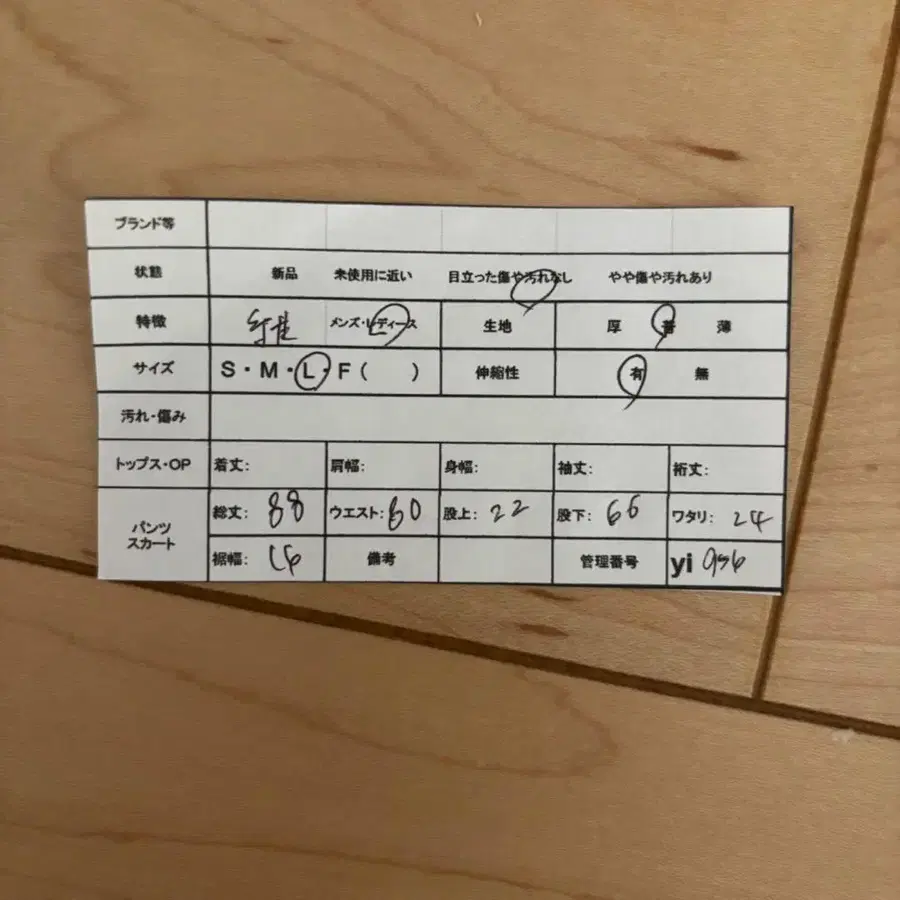 ブランド等
状態 新品 未使用に近い 目立った傷や汚れなし やや傷や汚れあり
特徴 メンズ・レディース 生地 厚 普 薄
サイズ S・M・L・F( ) 伸縮性 有 無
汚れ・傷み
トップス・OP 着丈: 肩幅: 身幅: 袖丈: 裄丈:
パンツ スカート 総丈: 88 ウエスト: 股上: 22 股下: 66 ワタリ: 24
裾幅: 16 備考 管理番号 yi